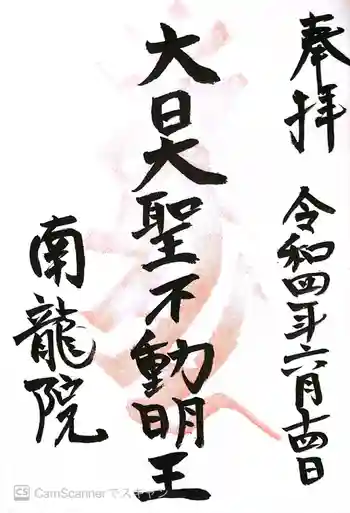 奉拝
令和四年六月十四日
大日大聖不動明王
南龍院
CS CamScannerでスキャン